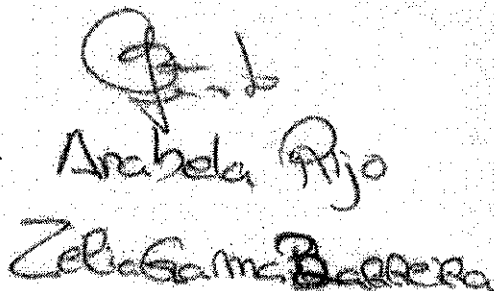 Anabela Rijo
Zelia Gama Barreira